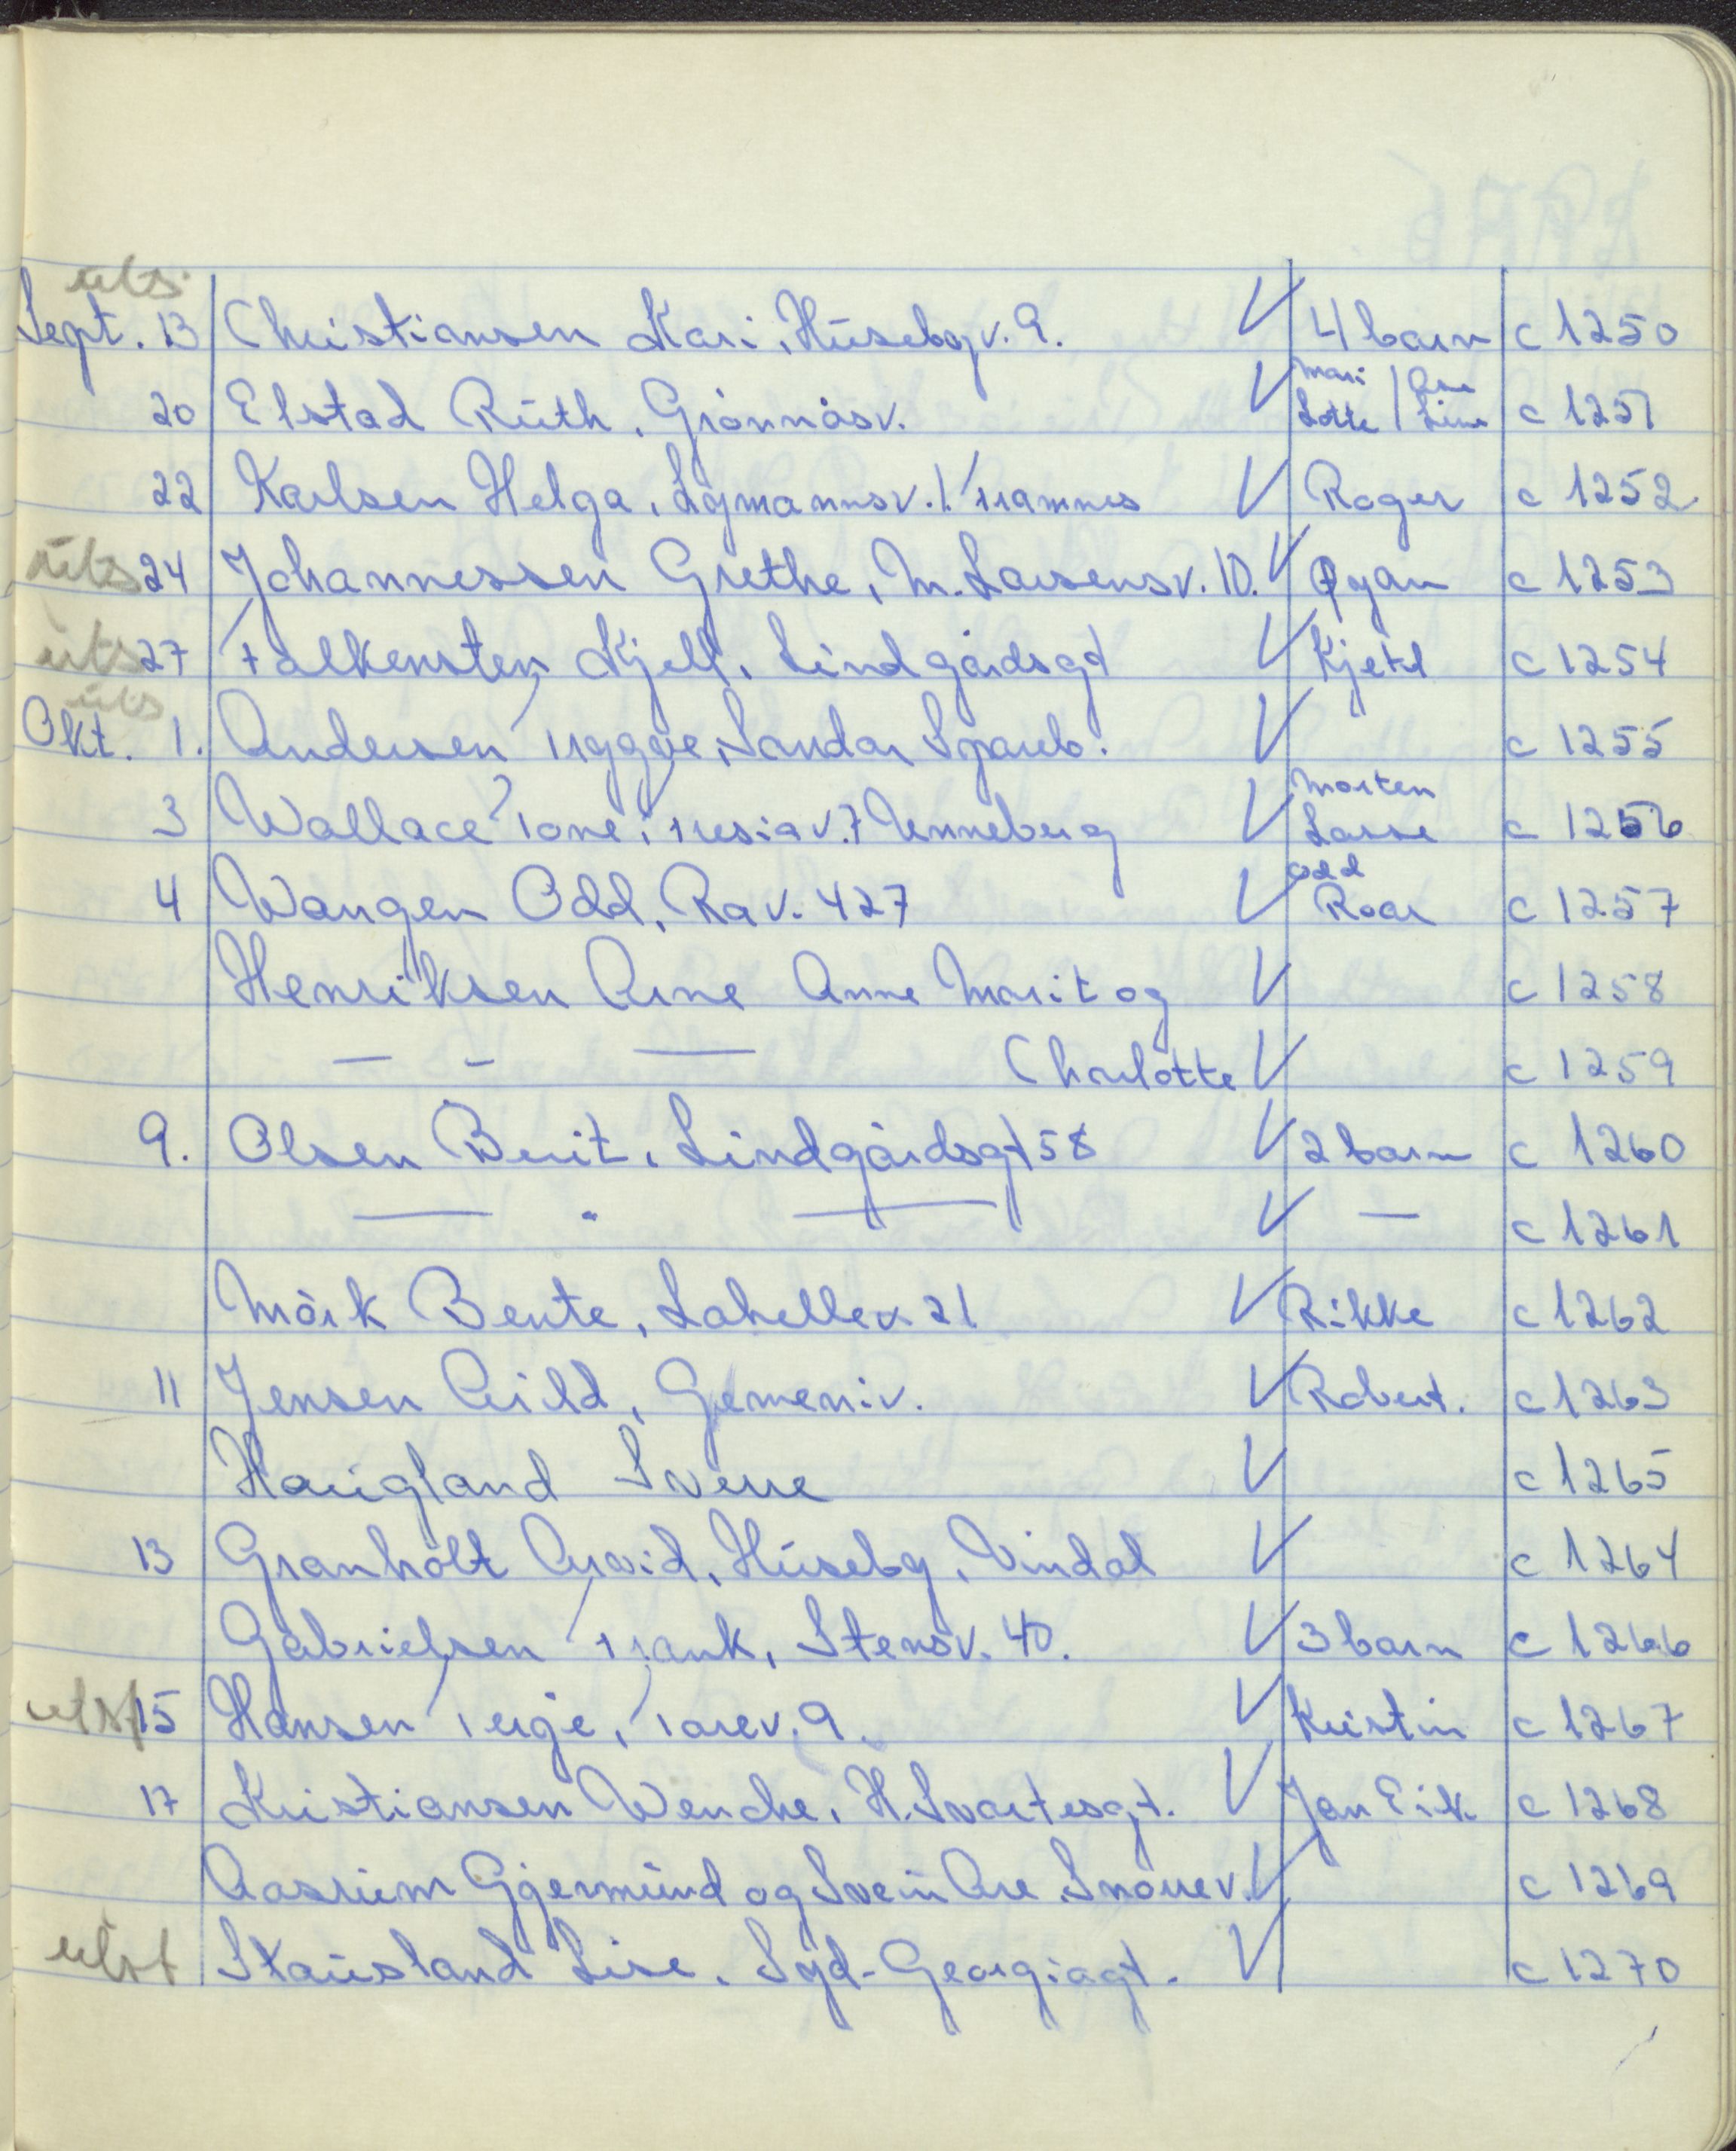 uts.
Sept. 13 Christiansen Kari, Husebyv. 9. ✓ 4 barn c 1250
20 Elstad Ruth, Grönnåsv. ✓ Mari Lotte / Line c 1251
22 Karlsen Helga, Lymannsv. 1 Framnes ✓ Roger c 1252
uts 24 Johannessen Grethe, M. Larsensv. 10. ✓ Ørjan c 1253
uts 27 Falkensten Kjell, Lindgårdsgt ✓ Kjetil c 1254
uts
Okt. 1. Andersen Tryggve, Sandar Spareb. ✓ c 1255
3 Wallace Tone, Fresiav. 7 Unneberg ✓ Morten Lasse c 1256
4 Wangen Odd, Rav. 427 ✓ Odd Roar c 1257
Henriksen Arne Anne Marit og ✓ c 1258
— - — Charlotte ✓ c 1259
9. Olsen Berit, Lindgårdsgt 58 ✓ 2 barn c 1260
— " — ✓ — c 1261
Mörk Bente, Lahellev 21 ✓ Rikke c 1262
11 Jensen Arild, Gemeniv. ✓ Robert. c 1263
Haugland Sverre ✓ c 1265
13 Granholt Arvid, Huseby, Vindal ✓ c 1264
Gabrielsen Frank, Stensv. 40. ✓ 3 barn c 1266
utst 15 Hansen Terje, Torev. 9. ✓ Kristin c 1267
17 Kristiansen Wenche, H. Svartesgt. ✓ Jan Eik c 1268
Aasrum Gjermund og Svein Are Snorrev. ✓ c 1269
utst Stausland Lise, Syd-Georgiagt. ✓ c 1270